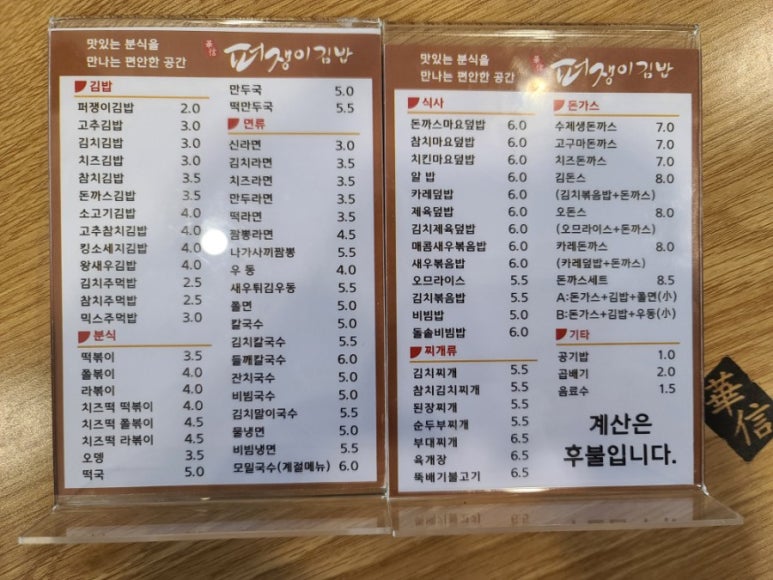 맛있는 분식을
만나는 편안한 공간
華信
퍼쟁이김밥
김밥
퍼쟁이김밥 2.0
고추김밥 3.0
김치김밥 3.0
치즈김밥 3.0
참치김밥 3.5
돈까스김밥 3.5
소고기김밥 4.0
고추참치김밥 4.0
킹소세지김밥 4.0
왕새우김밥 4.0
김치주먹밥 2.5
참치주먹밥 2.5
믹스주먹밥 3.0
분식
떡볶이 3.5
쫄볶이 4.0
라볶이 4.0
치즈떡 떡볶이 4.0
치즈떡 쫄볶이 4.5
치즈떡 라볶이 4.5
오뎅 3.5
떡국 5.0
만두국 5.0
떡만두국 5.5
면류
신라면 3.0
김치라면 3.5
치즈라면 3.5
만두라면 3.5
떡라면 3.5
짬뽕라면 4.5
나가사끼짬뽕 5.5
우 동 4.0
새우튀김우동 5.5
쫄면 5.0
칼국수 5.0
김치칼국수 5.5
들깨칼국수 6.0
잔치국수 5.0
비빔국수 5.0
김치말이국수 5.5
물냉면 5.0
비빔냉면 5.5
모밀국수(계절메뉴) 6.0
맛있는 분식을
만나는 편안한 공간
華信
퍼쟁이김밥
식사
돈까스마요덮밥 6.0
참치마요덮밥 6.0
치킨마요덮밥 6.0
알 밥 6.0
카레덮밥 6.0
제육덮밥 6.0
김치제육덮밥 6.0
매콤새우볶음밥 6.0
새우볶음밥 6.0
오므라이스 5.5
김치볶음밥 5.5
비빔밥 5.0
돌솥비빔밥 6.0
찌개류
김치찌개 5.5
참치김치찌개 5.5
된장찌개 5.5
순두부찌개 5.5
부대찌개 6.5
육개장 6.5
뚝배기불고기 6.5
돈가스
수제생돈까스 7.0
고구마돈까스 7.0
치즈돈까스 7.0
김돈스 8.0
(김치볶음밥+돈까스)
오돈스 8.0
(오므라이스+돈까스)
카레돈까스 8.0
(카레덮밥+돈까스)
돈까스세트 8.5
A:돈가스+김밥+쫄면(小)
B:돈가스+김밥+우동(小)
기타
공기밥 1.0
곱배기 2.0
음료수 1.5
계산은
후불입니다.
華信